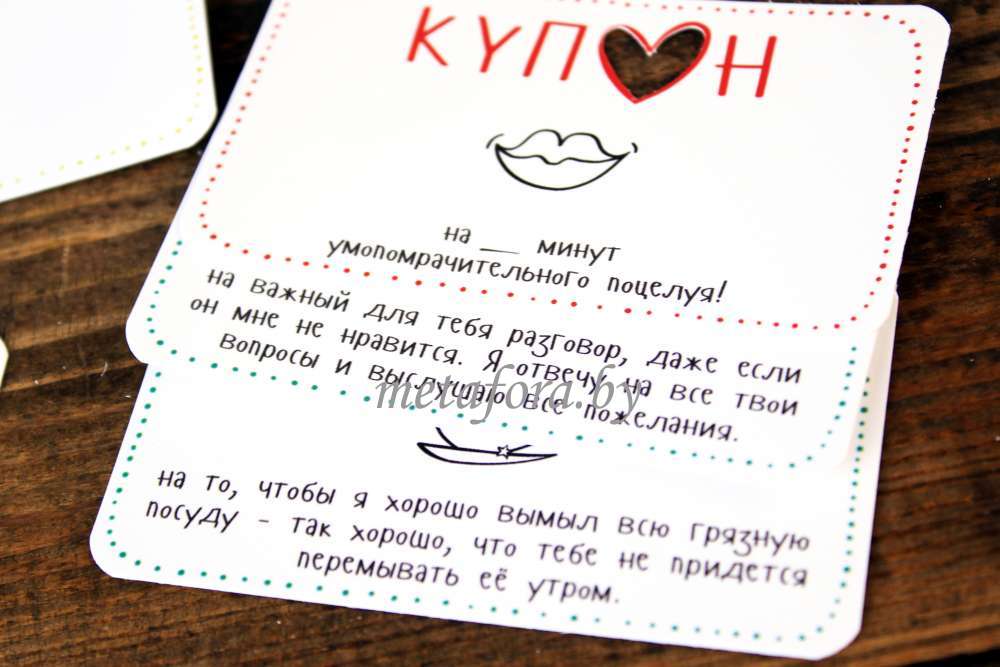 КУПОН
на ___ минут
умопомрачительного поцелуя!
на важный для тебя разговор, даже если
он мне не нравится. Я отвечу на все твои
вопросы и выслушаю все пожелания.
metafora.by
на то, чтобы я хорошо вымыл всю грязную
посуду - так хорошо, что тебе не придется
перемывать её утром.